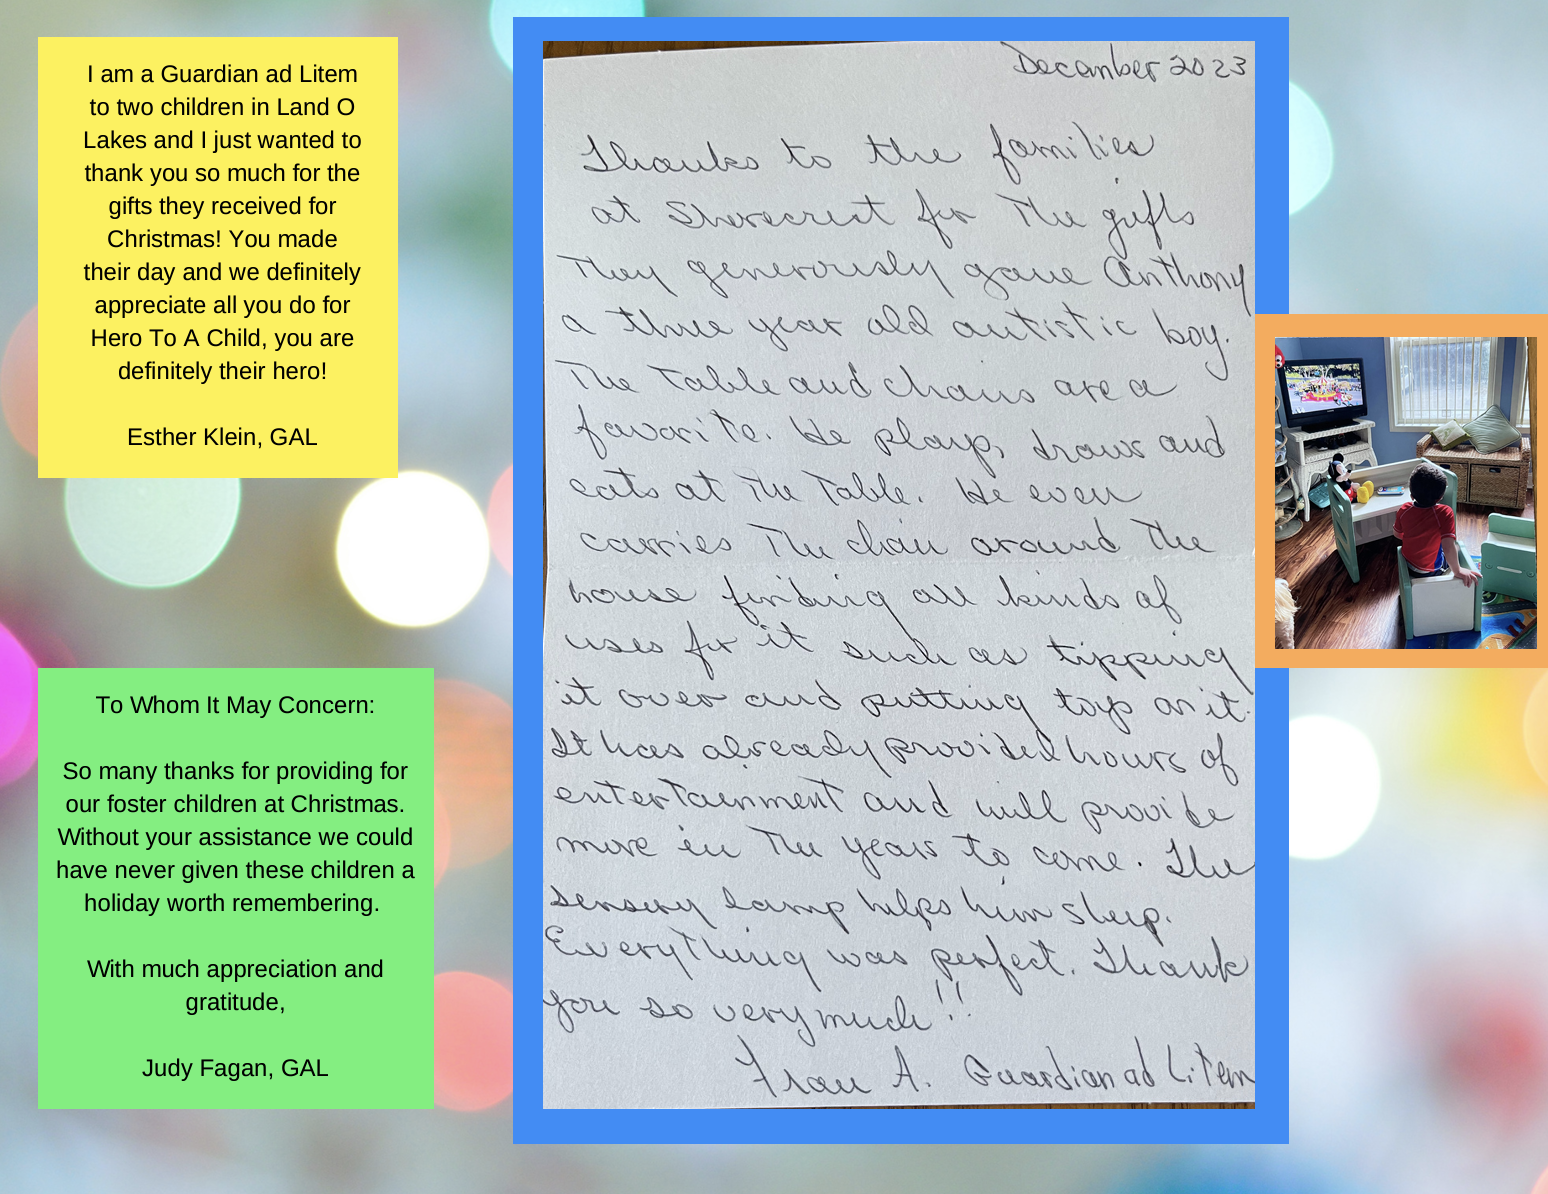 I am a Guardian ad Litem
to two children in Land O
Lakes and I just wanted to
thank you so much for the
gifts they received for
Christmas! You made
their day and we definitely
appreciate all you do for
Hero To A Child, you are
definitely their hero!
Esther Klein, GAL
To Whom It May Concern:
So many thanks for providing for
our foster children at Christmas.
Without your assistance we could
have never given these children a
holiday worth remembering.
With much appreciation and
gratitude,
Judy Fagan, GAL
December 2023
Thanks to the families
at Shorecrest for the gifts
they generously gave Anthony
a three year old autistic boy.
The table and chairs are a
favorite. He plays, draws and
eats at the table. He even
carries the chair around the
house finding all kinds of
uses for it such as tipping
it over and putting toys on it.
It has already provided hours of
entertainment and will provide
more in the years to come. The
sensory lamp helps him sleep.
Everything was perfect. Thank
you so very much!!
A. Guardian ad Litem